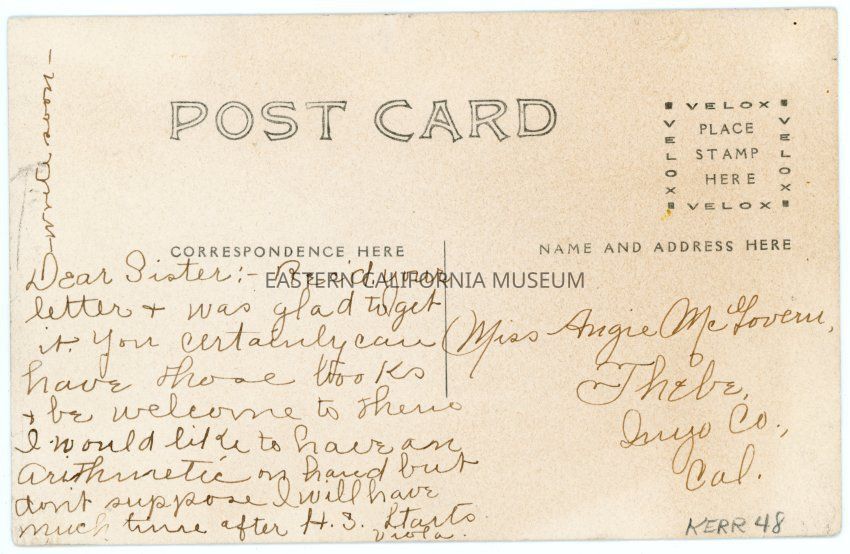 - write soon -
POST CARD
VELOX
VELOX
VELOX
PLACE
STAMP
HERE
VELOX
CORRESPONDENCE HERE
NAME AND ADDRESS HERE
EASTERN CALIFORNIA MUSEUM
Dear Sister:- Rec'd your
letter + was glad to get
it. You certainly can
have those books
+ be welcome to them
I would like to have an
arithmetic on hand but
don't suppose I will have
much time after H.S. starts.
Viola.
Miss Angie McGovern,
Thebe,
Inyo Co.,
Cal.
KERR 48